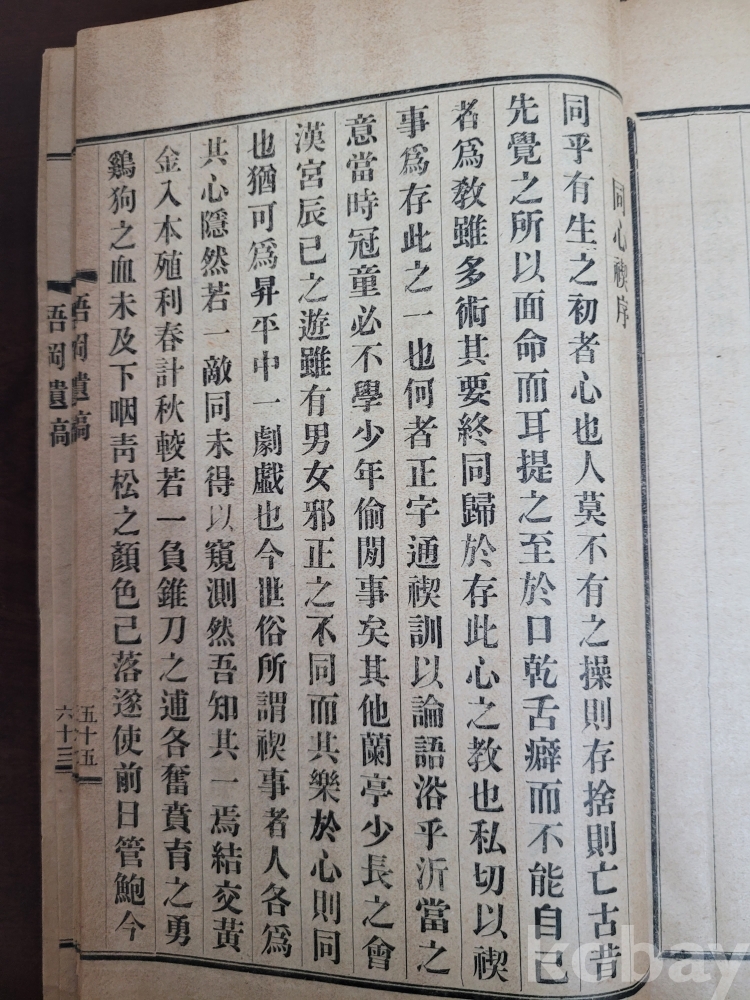 同心禊序
同乎有生之初者心也人莫不有之操則存捨則亡古昔
先覺之所以面命而耳提之至於口乾舌癖而不能自已
者爲敎雖多術其要終同歸於存此心之教也私切以禊
事爲存此之一也何者正字通禊訓以論語浴乎沂當之
意當時冠童必不學少年偷閒事矣其他蘭亭少長之會
漢宮辰巳之遊雖有男女邪正之不同而其樂於心則同
也猶可爲昇平中一劇戱也今世俗所謂禊事者人各爲
其心隱然若一敵同未得以窺測然吾知其一焉結交黃
金入本殖利春計秋較若一負錐刀之逋各奮賁育之勇
鷄狗之血未及下咽靑松之顏色已落遂使前日管鮑今
梧岡遺稿
五十五
梧岡遺稿
六十三
kobay